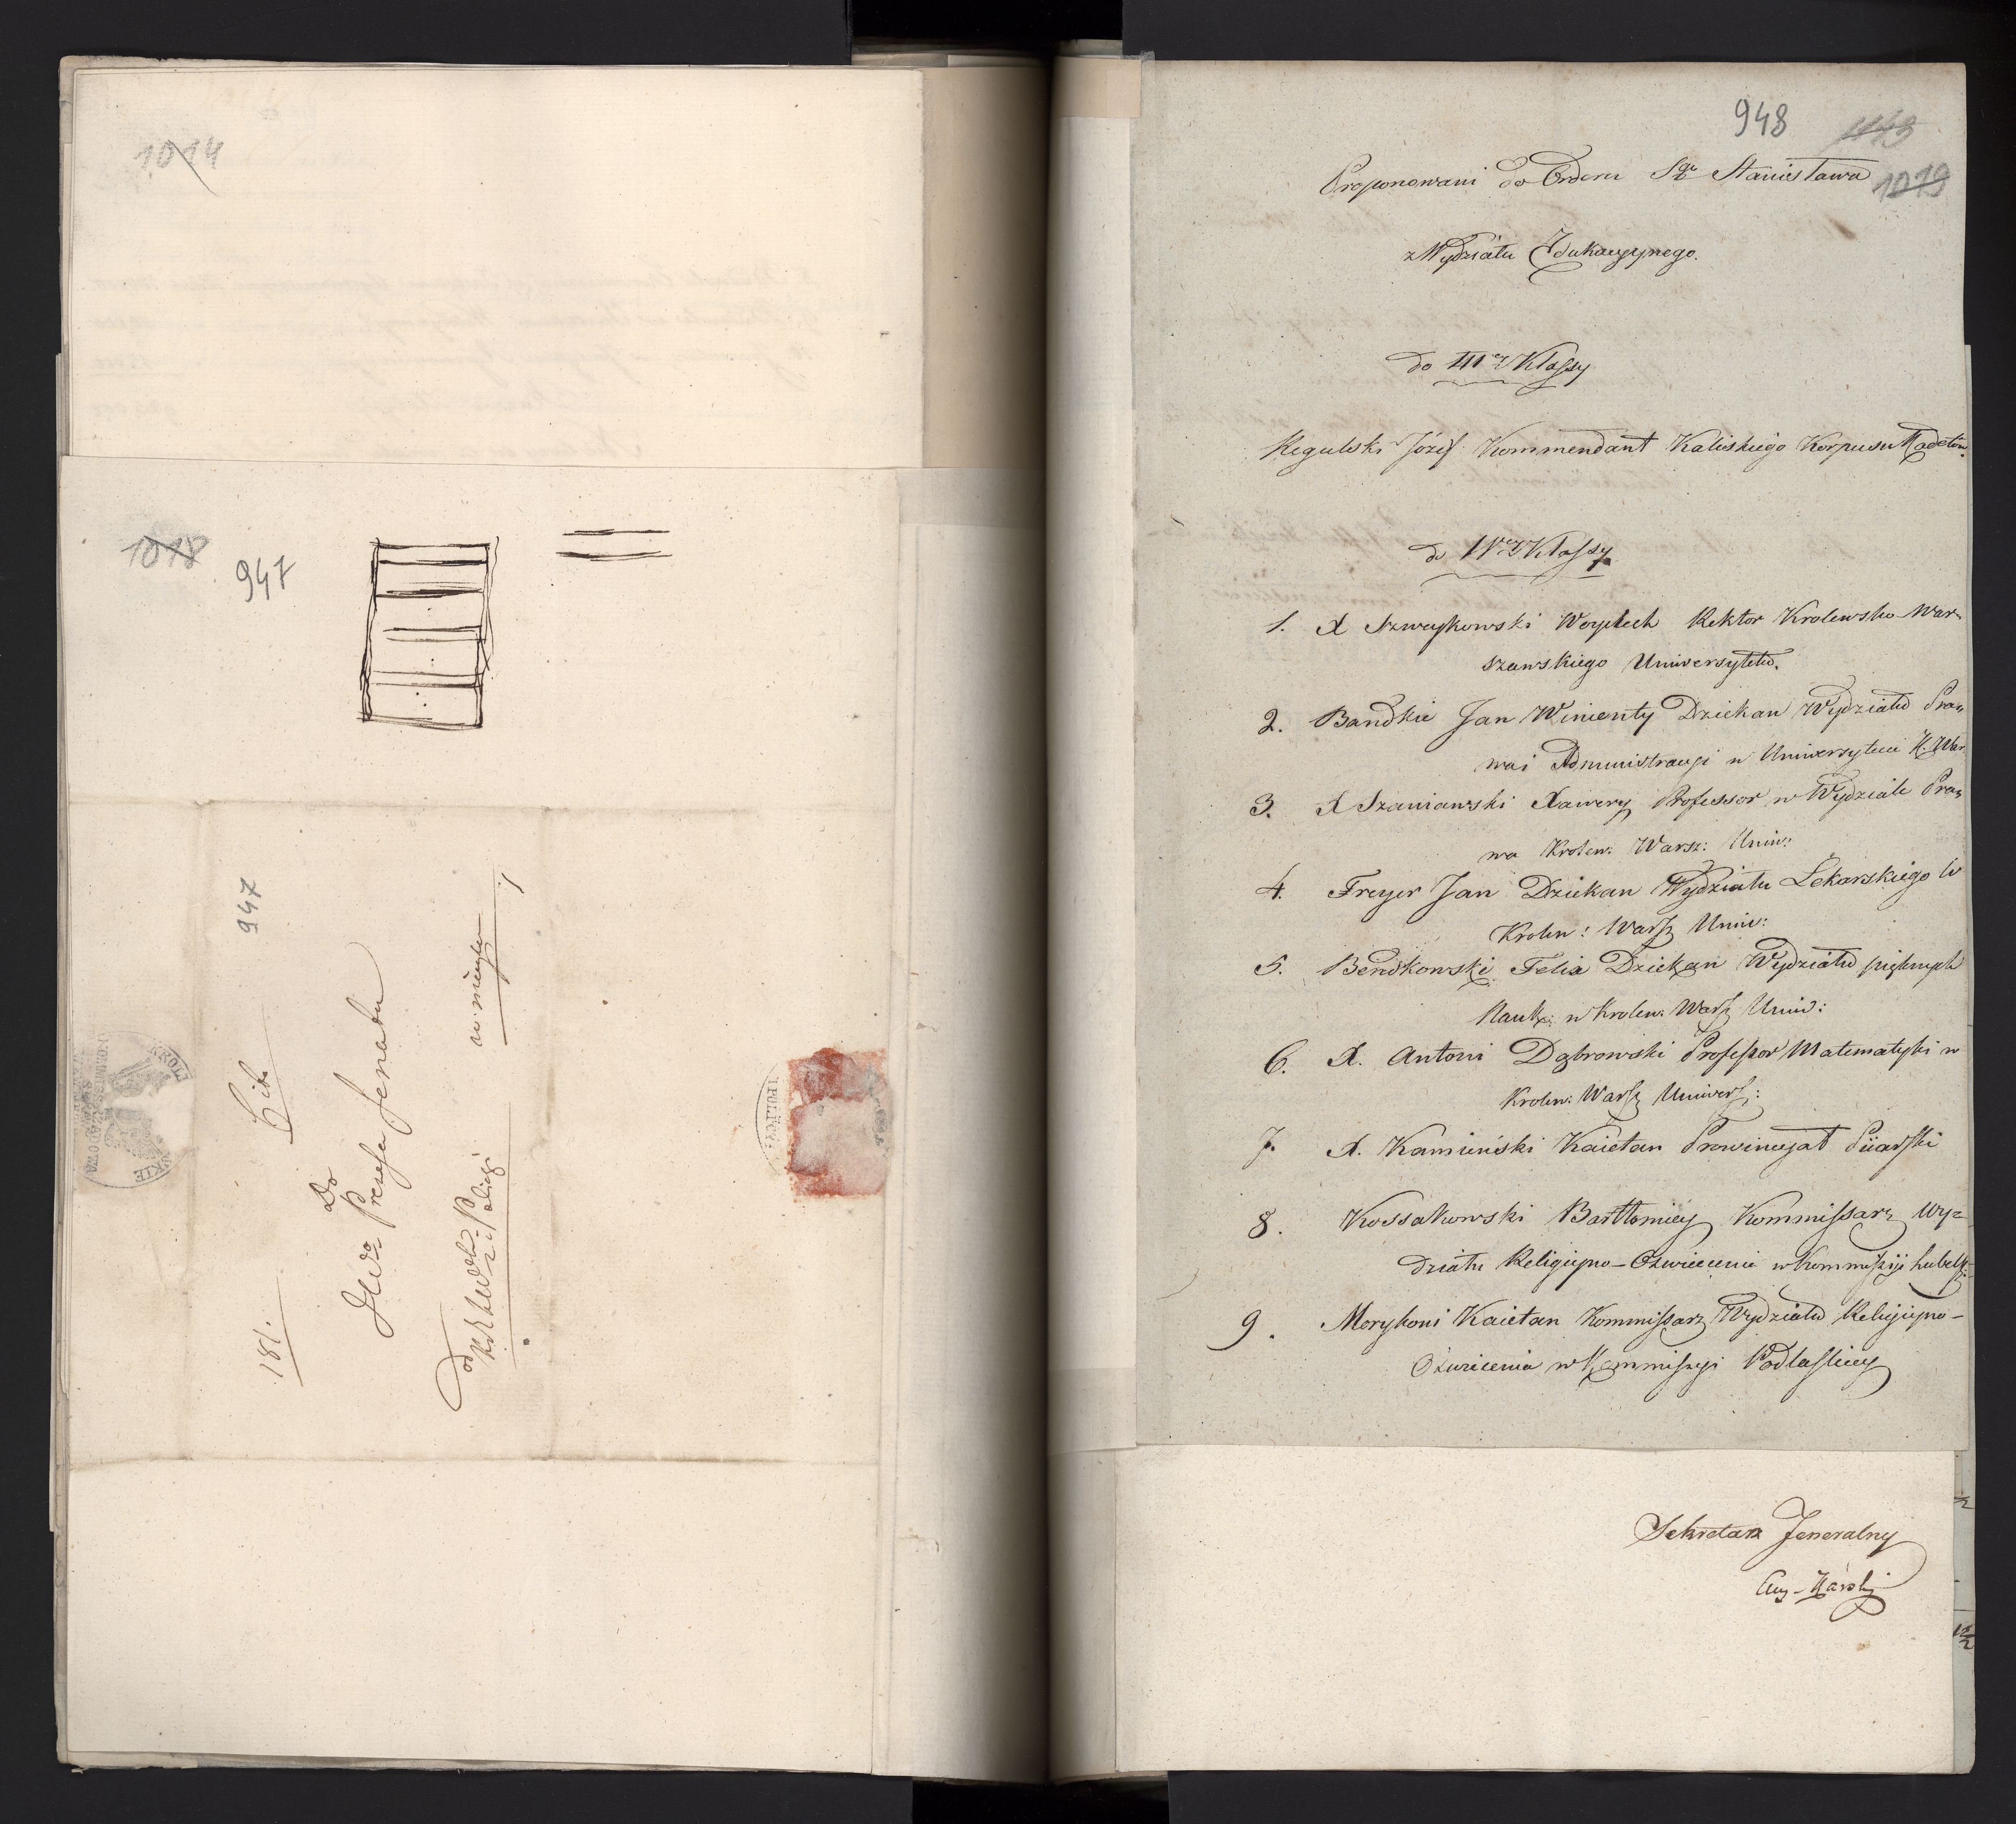 1014
1018
947
947
181.
Cito
Do
JWo Prezesa Senatu
w mieyscu
od
Poligi
KROL
SKIE
948
1019
Proponowani do Orderu Sgo Stanisława
z Wydziału Edukacyjnego.
do IIIey Klassy
Regulski Józef Kommendant Kaliskiego Korpusu Kadetów.
do IVey Klassy
1. X Szweykowski Woyciech Rektor Krolewsko War-
szawskiego Uniwersytetu.
2. Bandkie Jan Winienty Dziekan Wydziału Pra-
wa i Administracyi w Uniwersytecie K. War.
3. X Szaniawski Xawery Professor w Wydziale Pra-
wa Krolew: Warsz: Uniw:
4. Freyer Jan Dziekan Wydziału Lekarskiego w
Krolew: Warsz Uniw:
5. Bendkowski Felix Dziekan Wydziału pięknych
Nauk: w Krolew: Warsz Uniw:
6. X. Antoni Dąbrowski Professor Matematyki w
Krolew: Warsz Uniwers:
7. X. Kamieński Kaietan Prowincyał Piiarski
8. Kossakowski Bartłomiey Kommissarz Wy-
działu Religiyno-Oświecenia w Kommissyi Lubels:
9. Morykoni Kaietan Kommissarz Wydziału Religiyno-
Oświecenia w Kommissyi Podlaskiey
Sekretarz Jeneralny